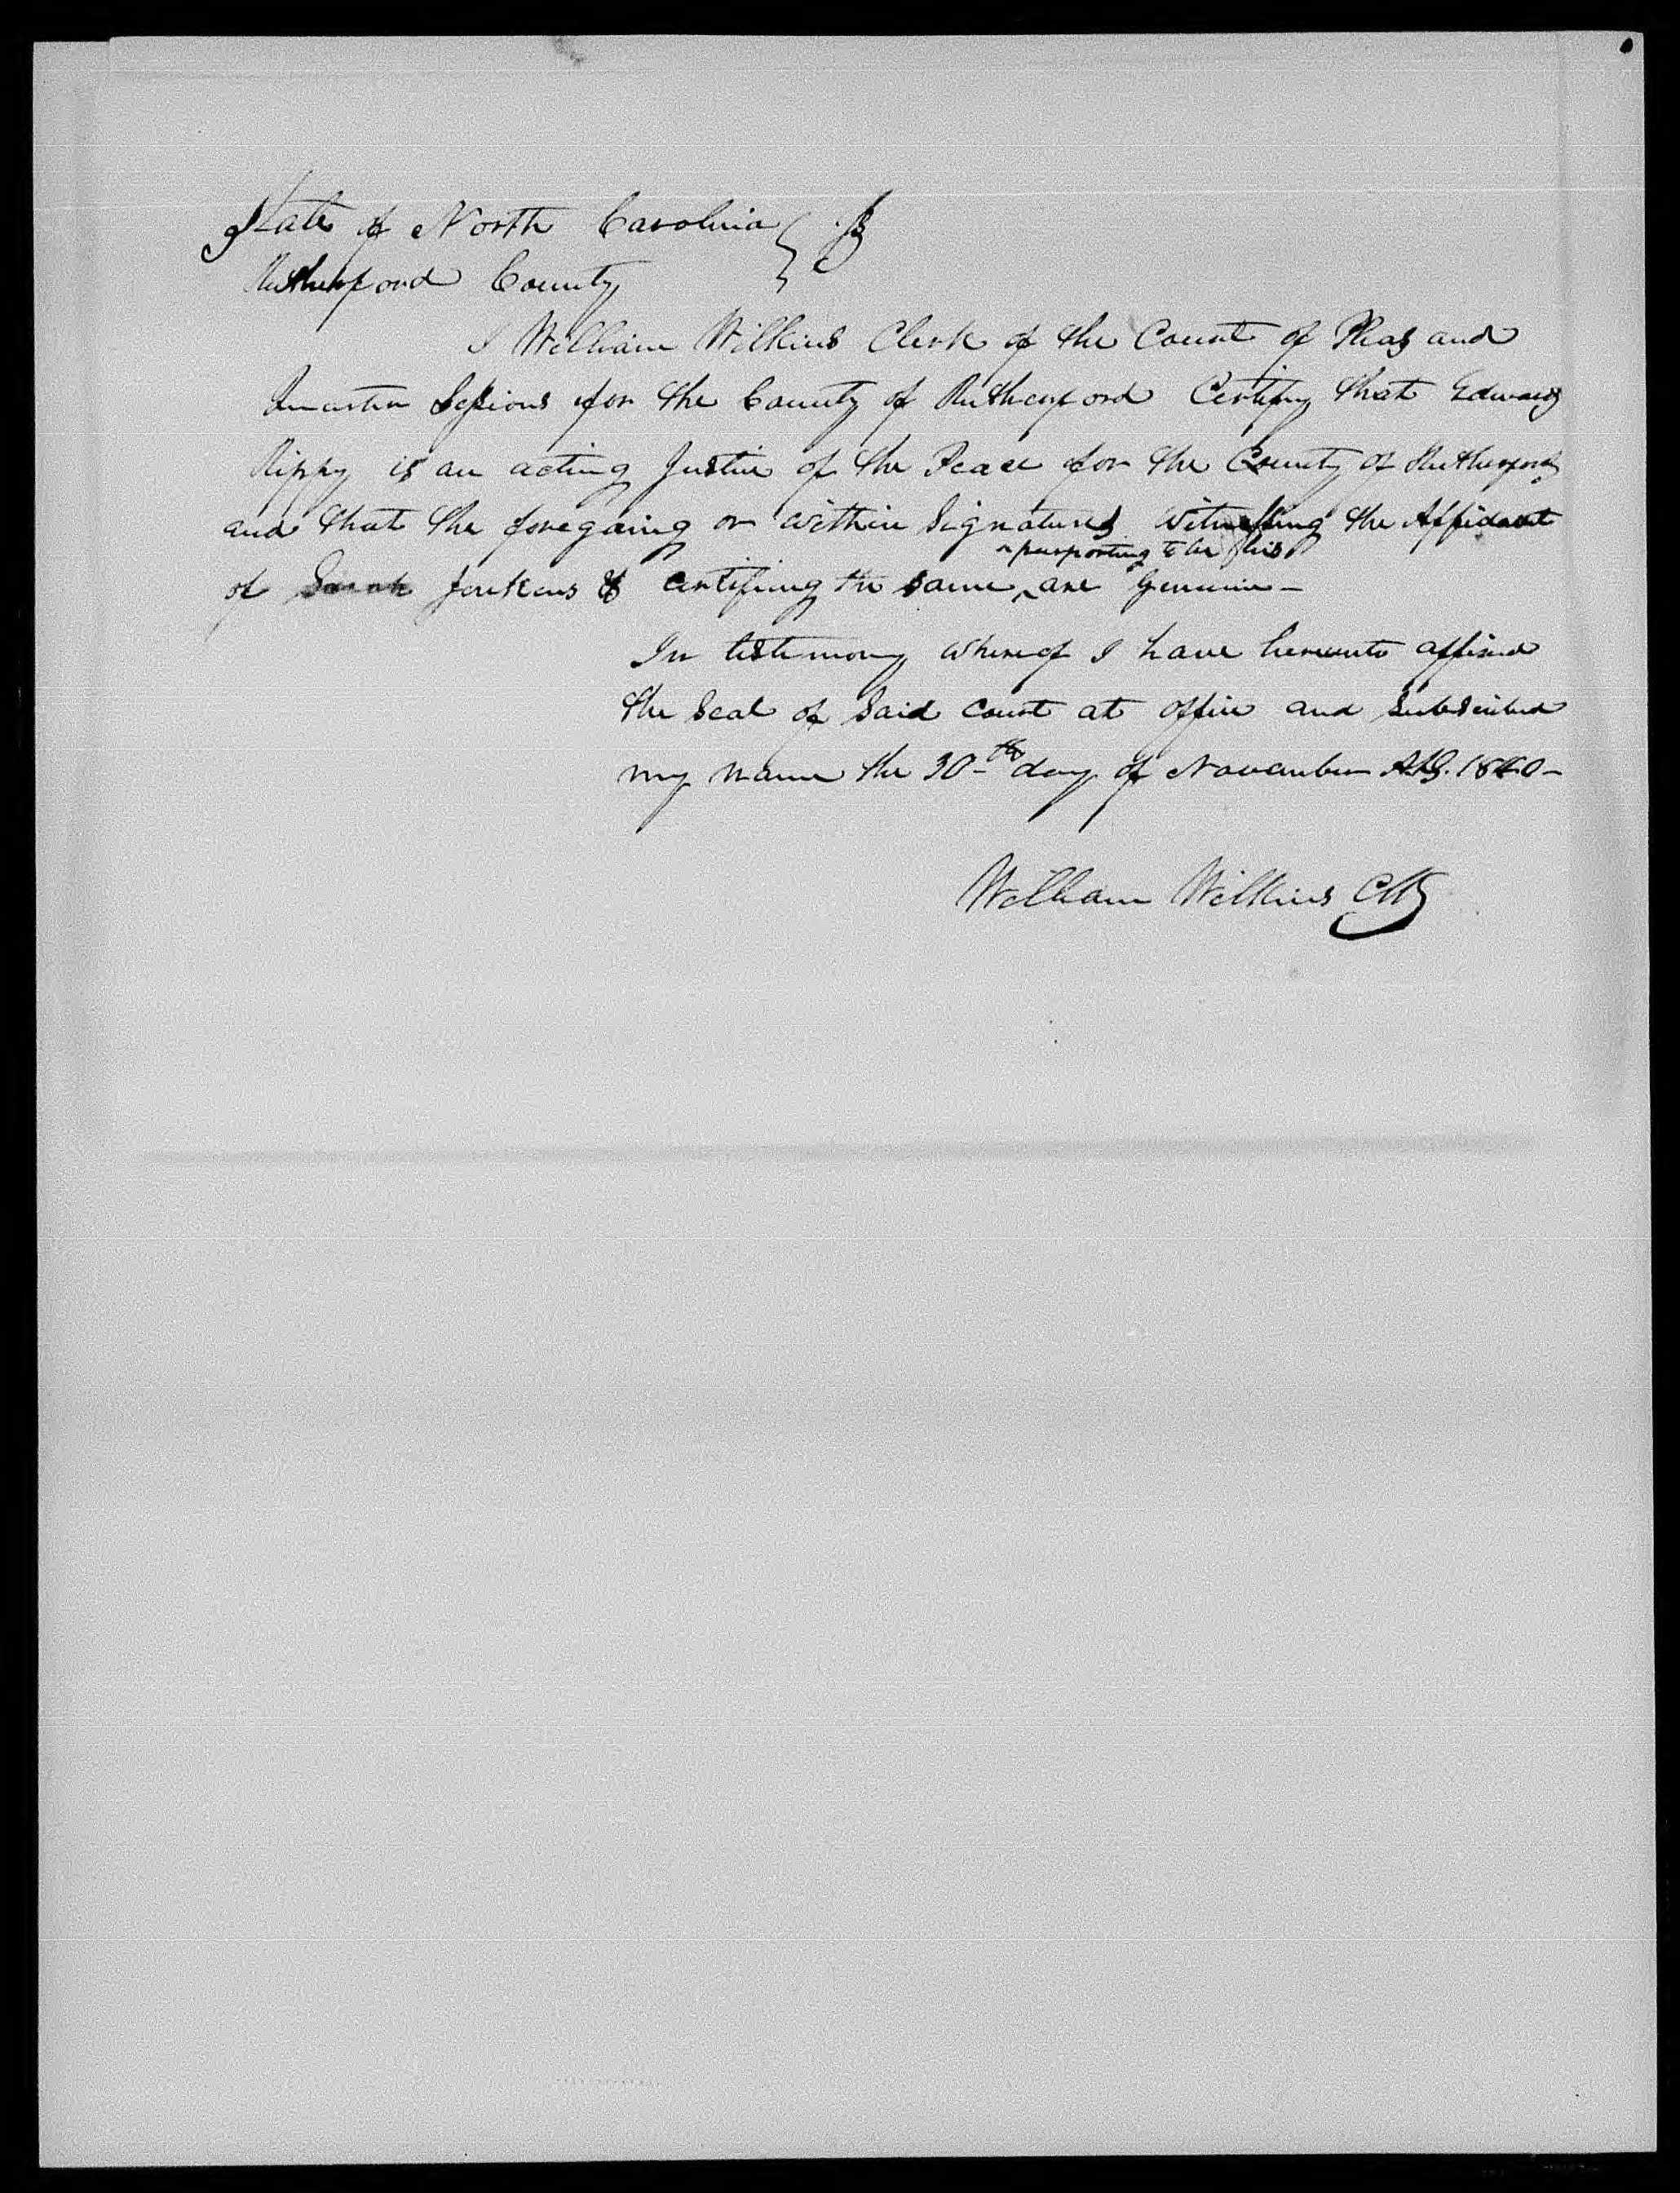 State of North Carolina } SS
Rutherford County
I William Wilkins Clerk of the Court of Pleas and
Quarter Sessions for the County of Rutherford Certify that Edward
Rippy is an acting Justice of the Peace for the County of Rutherford
and that the foregoing or within Signatures Witnessing the Affidavit
purporting to be his
of Sarah Jenkens & certifing the same ^ are Genuine -
In testimony whereof I have hereunto affixed
the Seal of Said Court at office and Subscribed
my name the 30-th day of November A.D. 1840-
William Wilkins Clk